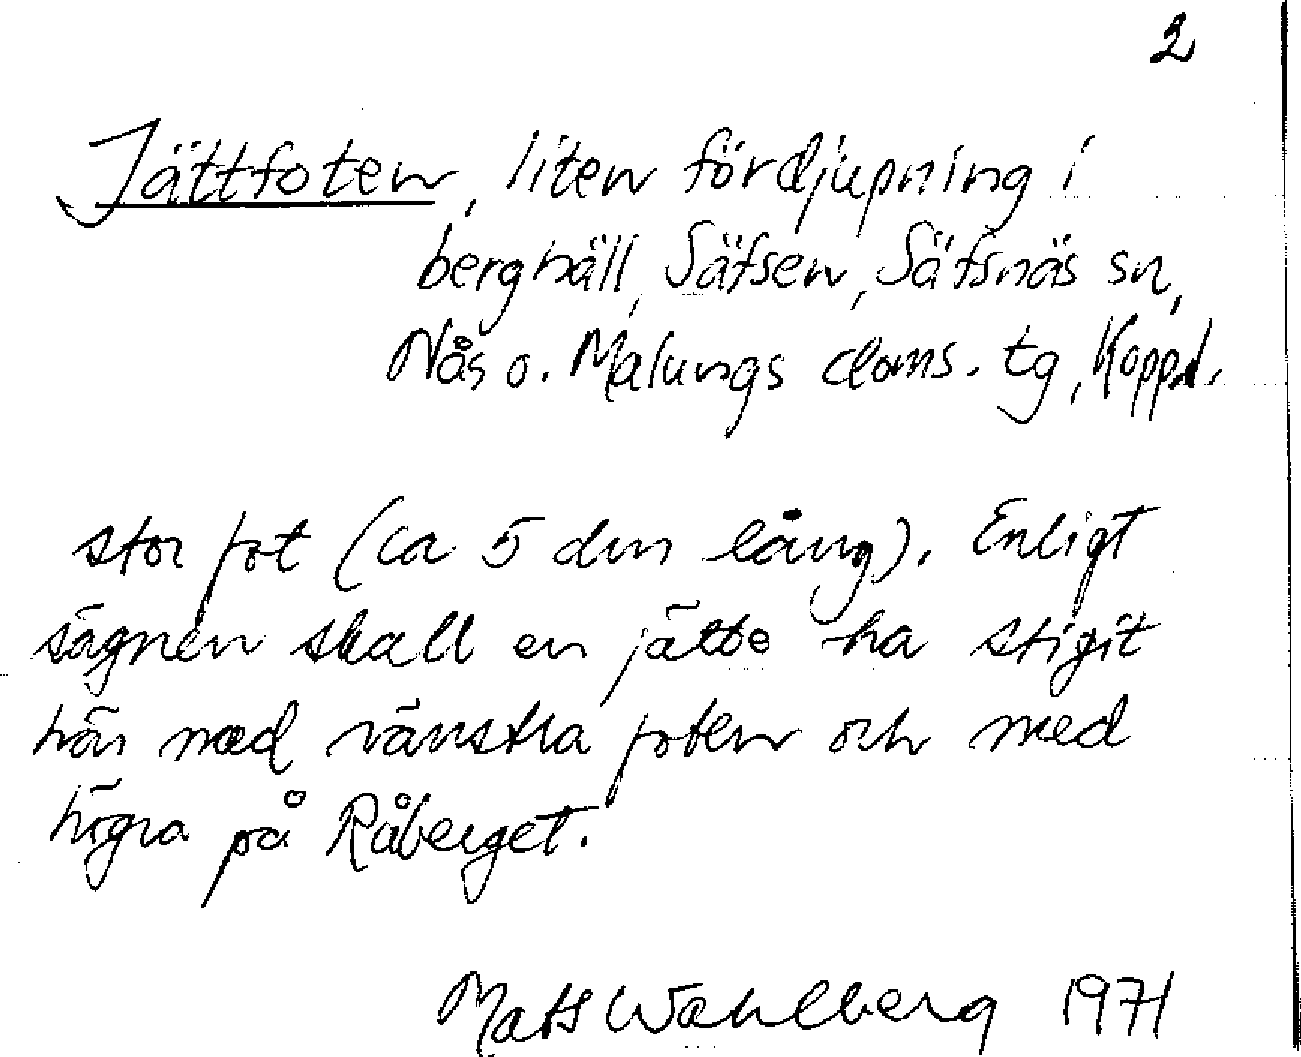 2
Jättfoten, liten fördjupning i
berghäll, Säfsen, Säfsnäs sn,
Nås o. Malungs doms. tg, Koppd.
stor fot (ca 5 dm lång). Enligt
sägnen skall en jätte ha stigit
här med vänstra foten och med
högra på Råberget.
Mats Wahlberg 1971